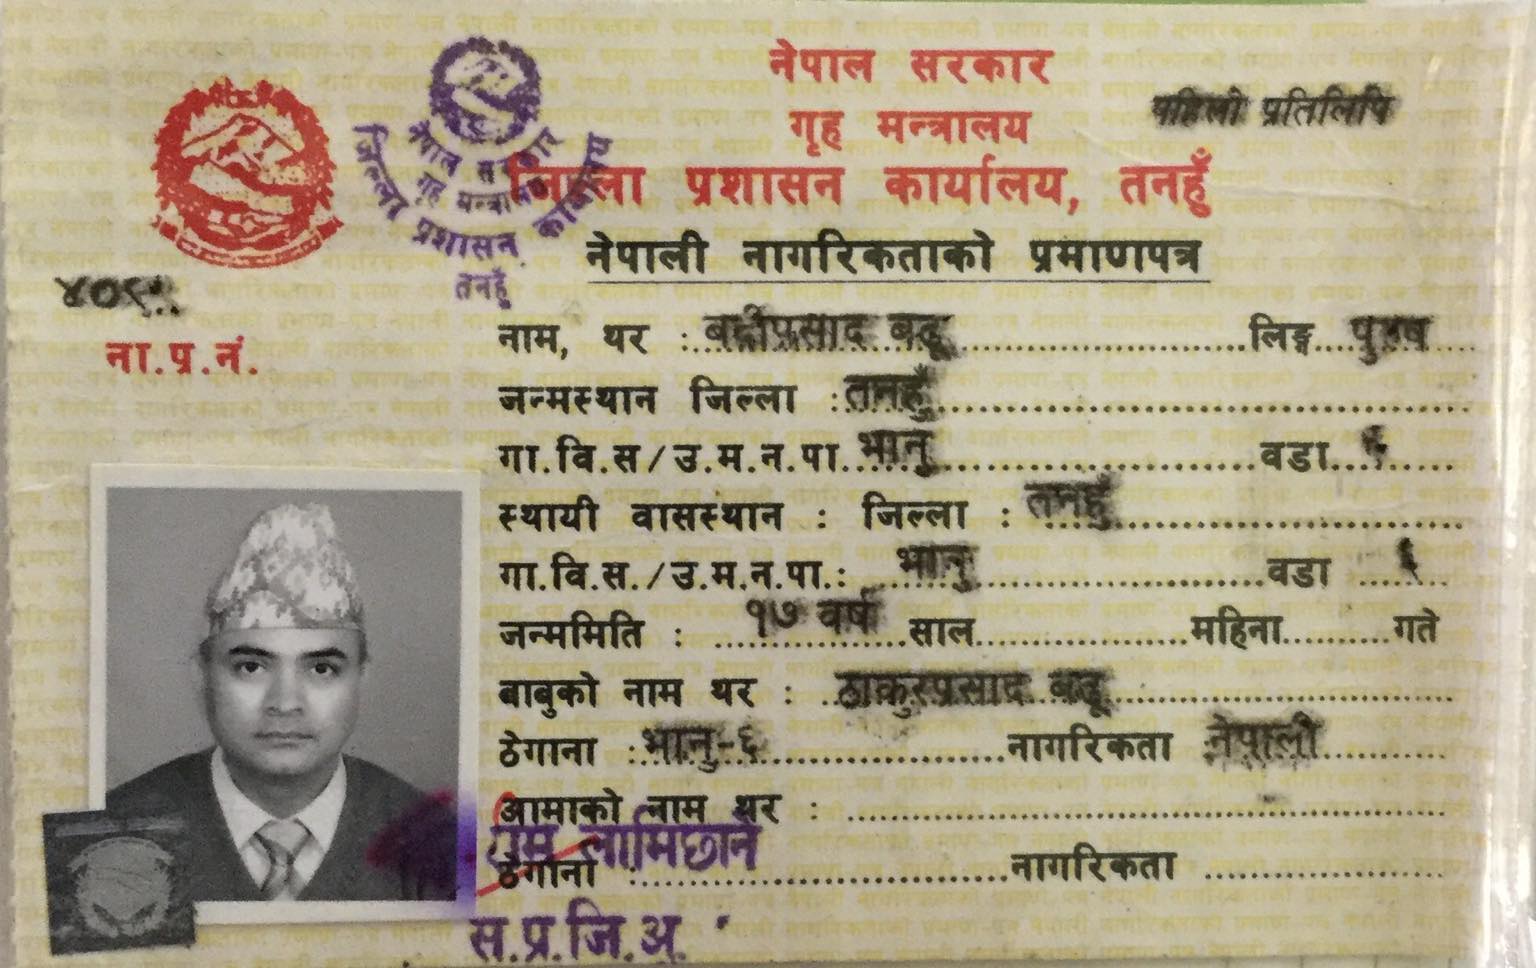 नेपाल सरकार
गृह मन्त्रालय
पहिलो प्रतिलिपि
जिल्ला प्रशासन कार्यालय, तनहुँ
नेपाली नागरिकताको प्रमाणपत्र
नेपाल सरकार
गृह मन्त्रालय
जिल्ला प्रशासन कार्यालय
तनहुँ
ना.प्र.नं.
नाम, थर : बद्रीप्रसाद बढू लिङ्ग पुरुष
जन्मस्थान जिल्ला : तनहुँ
गा.वि.स/उ.म.न.पा. भानु वडा ६
स्थायी वासस्थान : जिल्ला : तनहुँ
गा.वि.स./उ.म.न.पा.: भानु वडा ६
जन्ममिति : १७ वर्ष साल महिना गते
बाबुको नाम थर : ठाकुरप्रसाद बढू
ठेगाना : भानु-६ नागरिकता नेपाली
आमाको नाम थर :
लामिछाने
ठेगाना : नागरिकता
स.प्र.जि.अ.